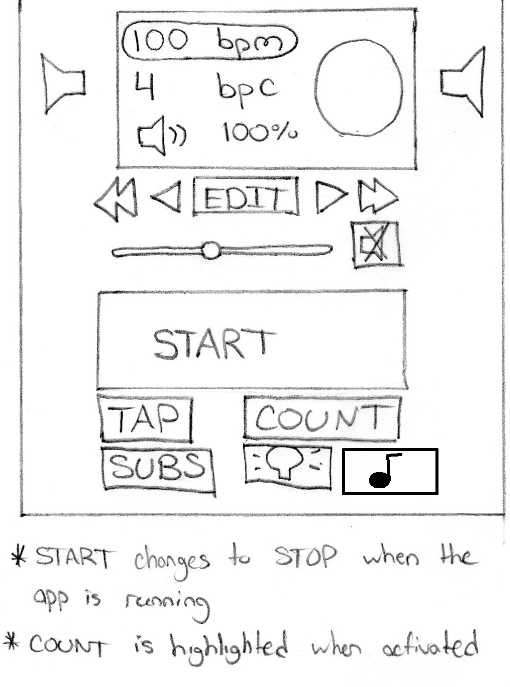 100 bpm
4 bpc
100%
EDIT
START
TAP COUNT
SUBS
* START changes to STOP when the
app is running
* COUNT is highlighted when activated